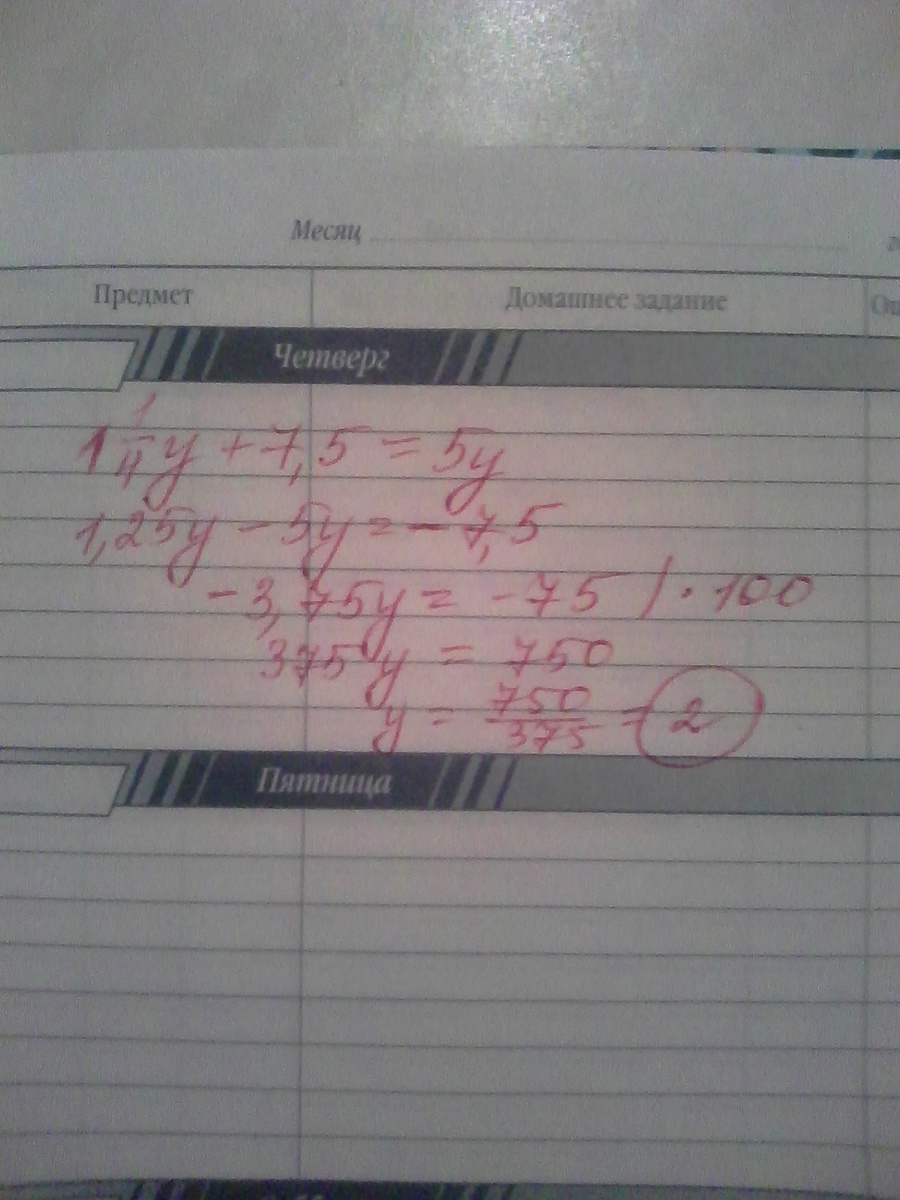 Месяц
Предмет Домашнее задание
Четверг
1 1/4 y + 7,5 = 5y
1,25y - 5y = - 7,5
- 3,75y = - 75 / · 100
375y = 750
y = 750/375 = 2
Пятница